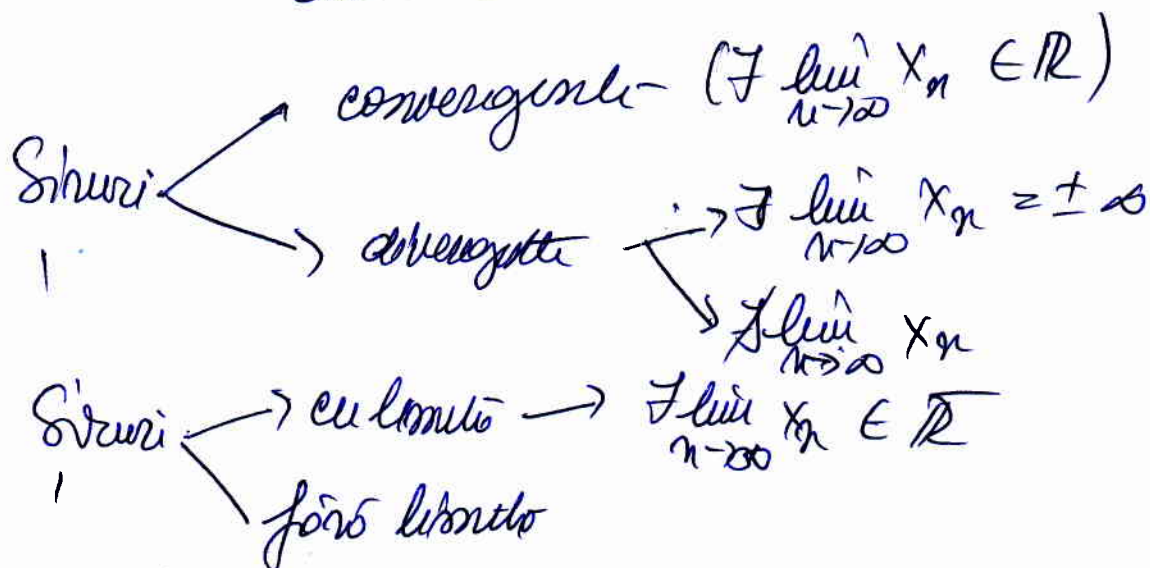 convergente (∃ lim n→∞ xn ∈ ℝ)
Șiruri
divergente ∃ lim n→∞ xn = ± ∞
∄ lim n→∞ xn
Șiruri cu limită → ∃ lim n→∞ xn ∈ ℝ̅
fără limită